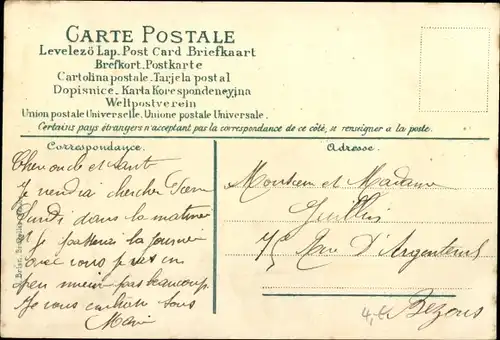 CARTE POSTALE
Levelező Lap._Post Card Briefkaart
Brefkort._Postkarte
Cartolina postale._Tarjela postal
Dopisnice._Karta Korespondencyjna
Weltpostverein
Union postale Universelle. Unione postale Universale.
Certains pays étrangers n'acceptant pas la correspondance de ce côté, se renseigner a la poste.
Correspondance.
Cher oncle et tante
Je viendrai chercher
Lundi dans la matinée
Je passerai la journée
avec vous je vais un
peu mieux pas beaucoup.
Je vous embrasse tous
Marie
Adresse.
Monsieur et Madame
Rue D'Argenteuil
Bezons